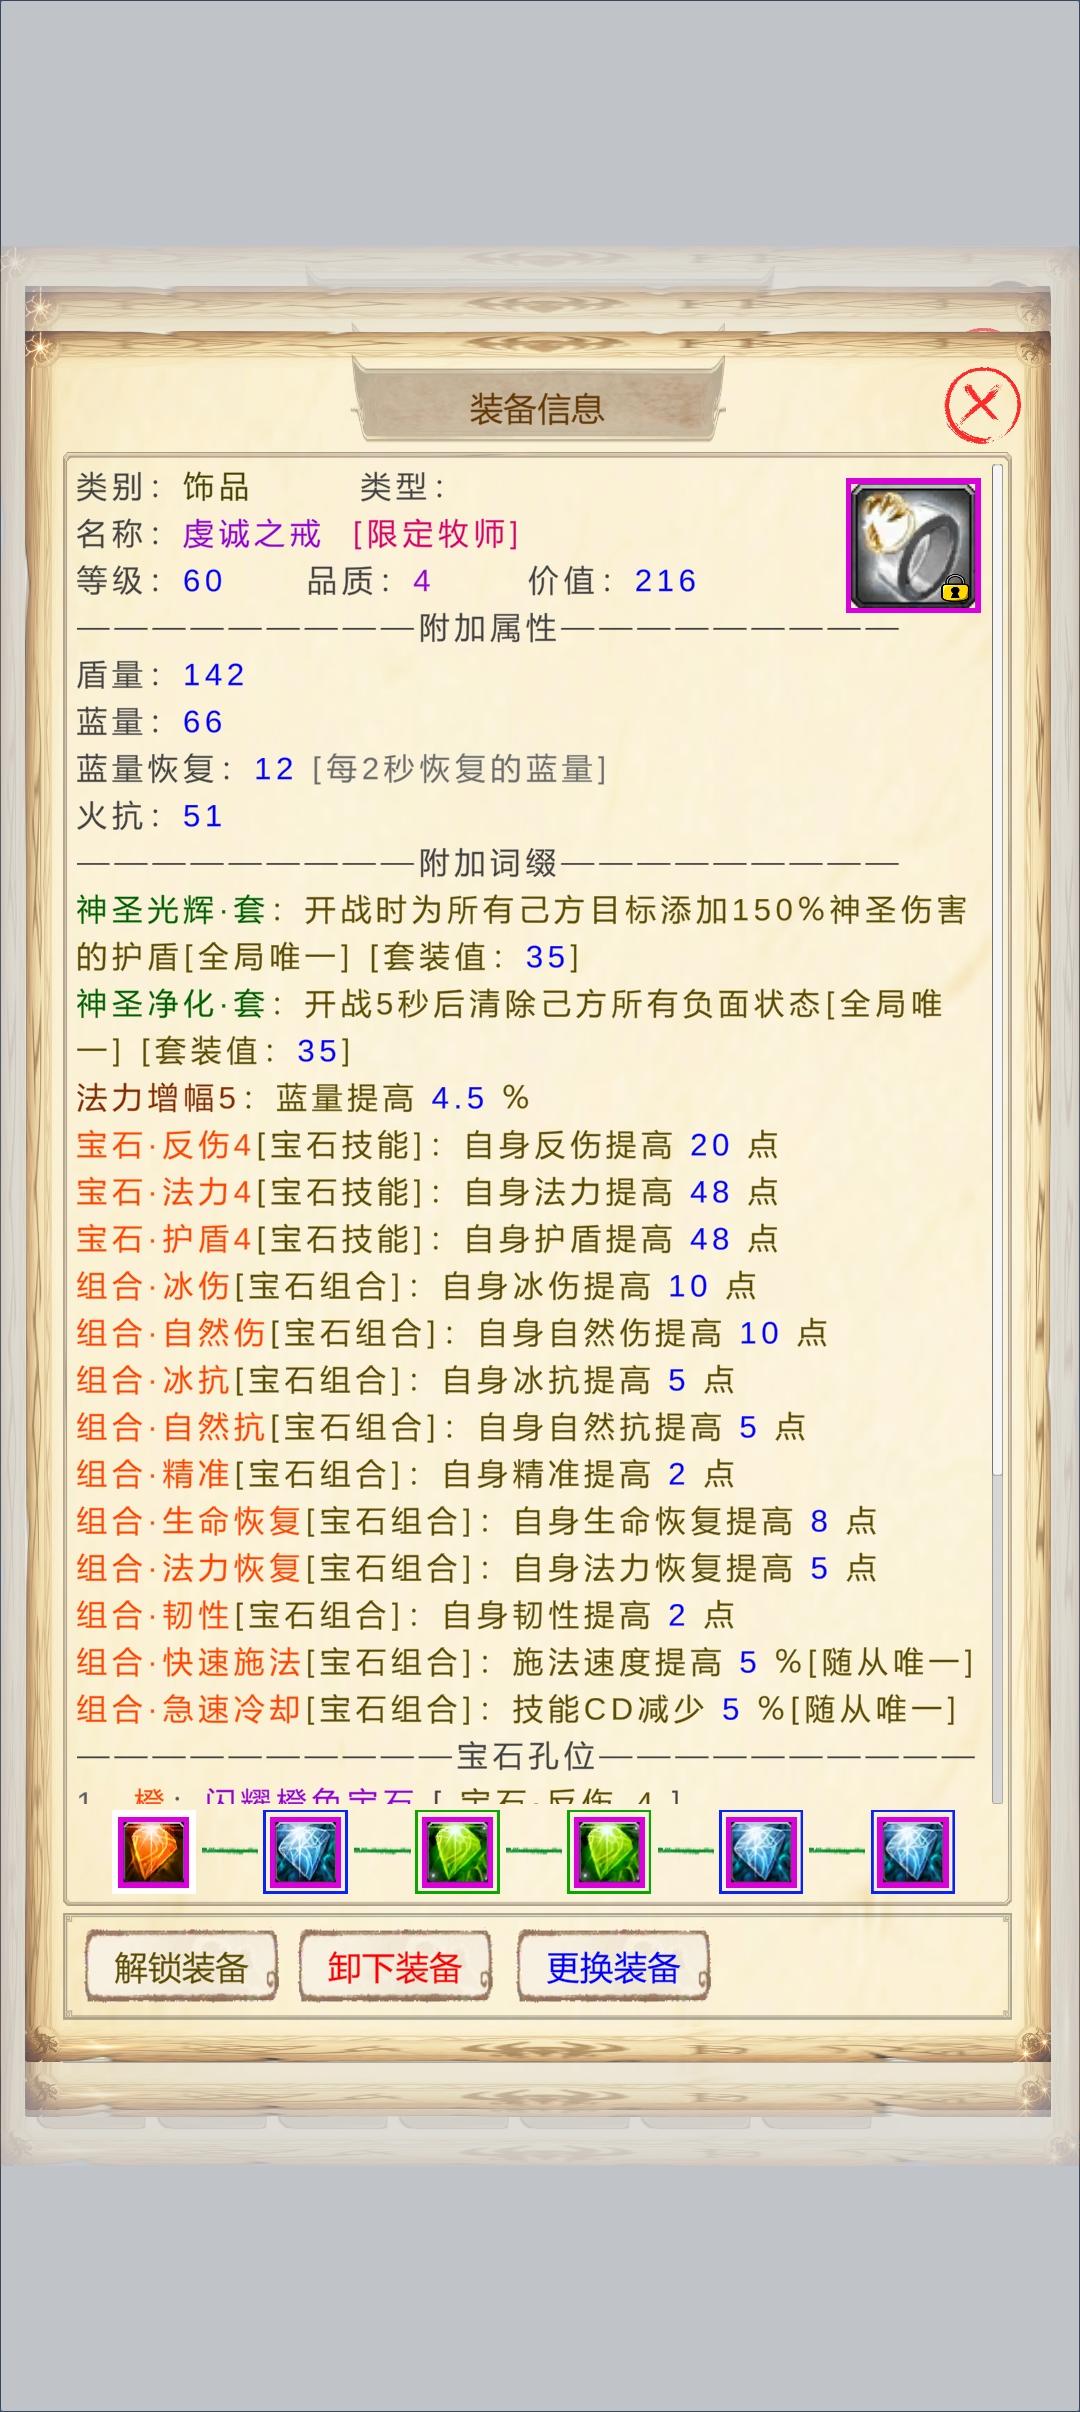 装备信息
类别：饰品 类型：
名称：虔诚之戒 [限定牧师]
等级：60 品质：4 价值：216
——————————附加属性——————————
盾量：142
蓝量：66
蓝量恢复：12 [每2秒恢复的蓝量]
火抗：51
——————————附加词缀——————————
神圣光辉·套：开战时为所有己方目标添加150%神圣伤害
的护盾[全局唯一] [套装值：35]
神圣净化·套：开战5秒后清除己方所有负面状态[全局唯
一] [套装值：35]
法力增幅5：蓝量提高 4.5 %
宝石·反伤4[宝石技能]：自身反伤提高 20 点
宝石·法力4[宝石技能]：自身法力提高 48 点
宝石·护盾4[宝石技能]：自身护盾提高 48 点
组合·冰伤[宝石组合]：自身冰伤提高 10 点
组合·自然伤[宝石组合]：自身自然伤提高 10 点
组合·冰抗[宝石组合]：自身冰抗提高 5 点
组合·自然抗[宝石组合]：自身自然抗提高 5 点
组合·精准[宝石组合]：自身精准提高 2 点
组合·生命恢复[宝石组合]：自身生命恢复提高 8 点
组合·法力恢复[宝石组合]：自身法力恢复提高 5 点
组合·韧性[宝石组合]：自身韧性提高 2 点
组合·快速施法[宝石组合]：施法速度提高 5 %[随从唯一]
组合·急速冷却[宝石组合]：技能CD减少 5 %[随从唯一]
———————————宝石孔位———————————
1 橙：闪耀橙色宝石 [ 宝石·反伤 4 ]
解锁装备 卸下装备 更换装备